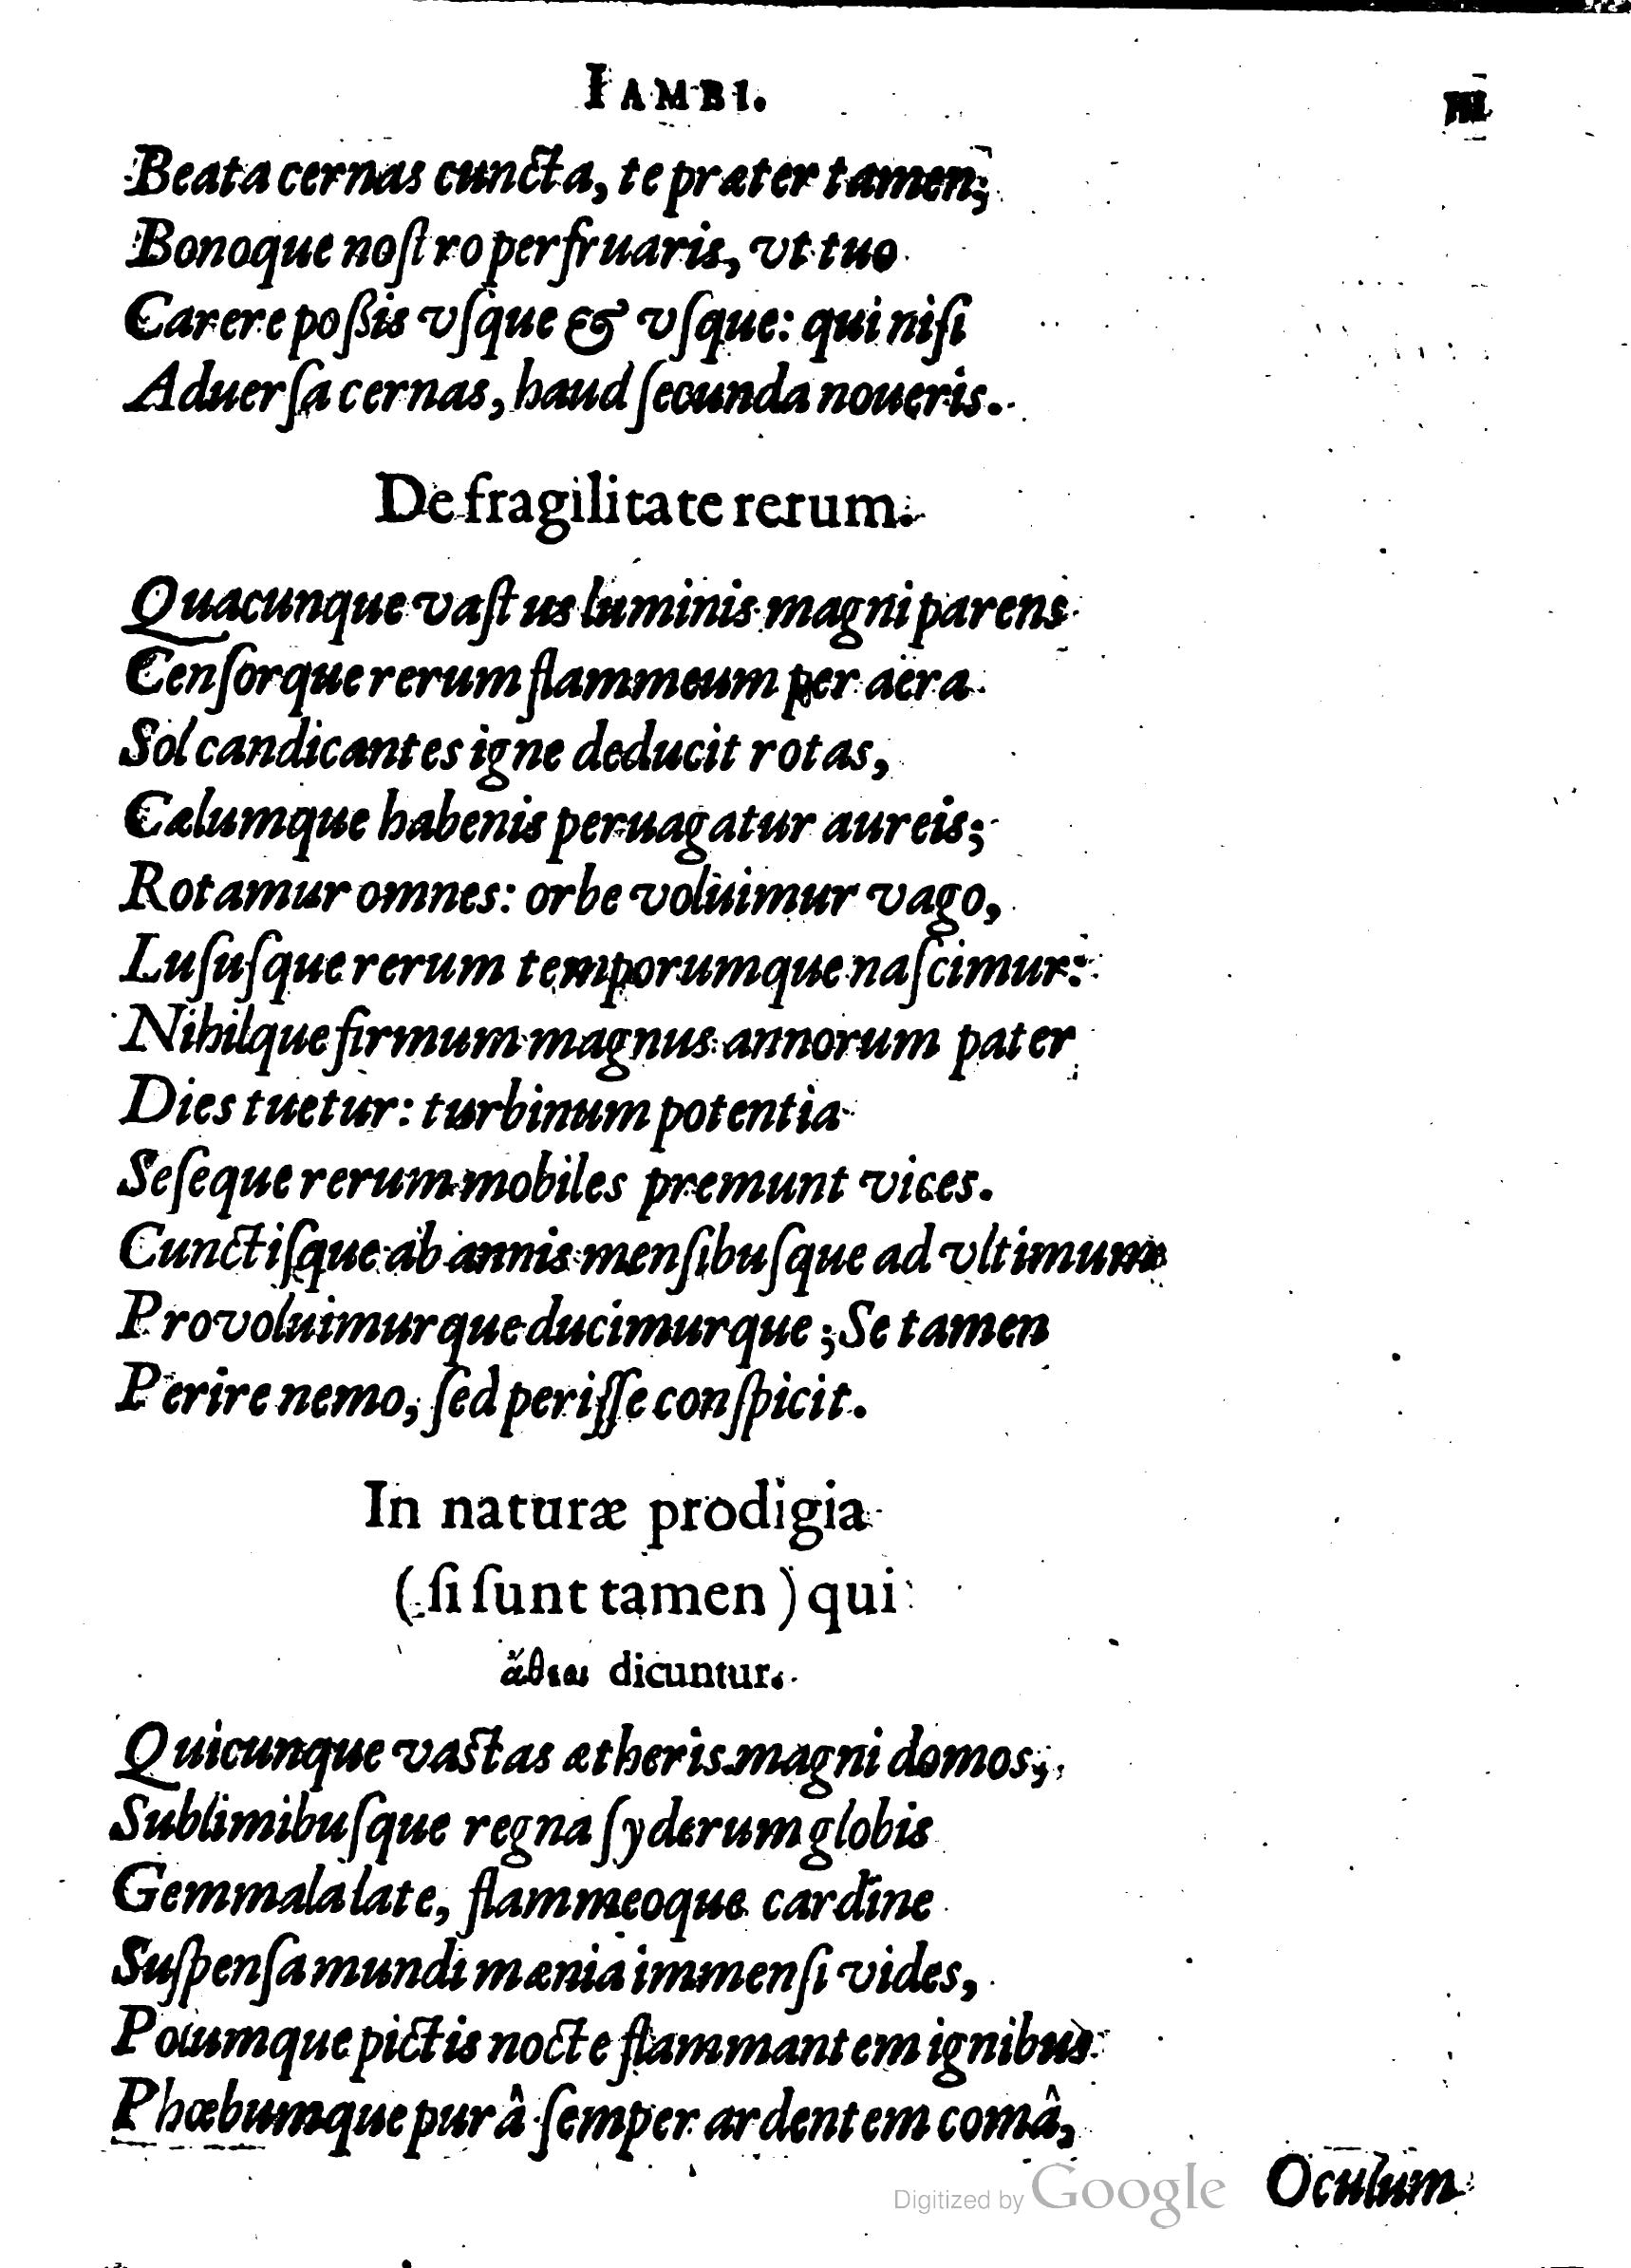 IAMBI.
Beata cernas cuncta, te præter tamen;
Bonoque noſtro perfruaris, vt tuo
Carere poßis vſque & vſque: qui niſi
Aduerſa cernas, haud ſecunda noueris.
De fragilitate rerum.
Quacunque vaſtus luminis magni parens
Cenſorque rerum flammeum per aëra
Sol candicantes igne deducit rotas,
Cælumque habenis peruagatur aureis;
Rotamur omnes: orbe voluimur vago,
Luſuſque rerum temporumque naſcimur:
Nihilque firmum magnus annorum pater
Dies tuetur: turbinum potentia
Seſeque rerum mobiles premunt vices.
Cunctiſque ab annis menſibuſque ad vltimum
Provoluimurque ducimurque; Se tamen
Perire nemo, ſed periſſe conſpicit.
In naturæ prodigia
(ſi ſunt tamen) qui
ἄθεοι dicuntur.
Quicunque vastas ætheris magni domos,
Sublimibuſque regna ſyderum globis
Gemmala late, flammeoque cardine
Suſpenſa mundi mænia immenſi vides,
Polumque pictis nocte flammantem ignibus
Phœbumque purâ ſemper ardentem comâ,
Oculum
Digitized by Google